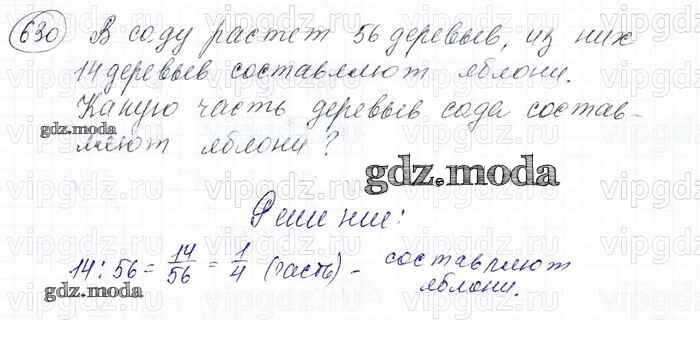 630 В саду растет 56 деревьев, из них
14 деревьев составляют яблони.
Какую часть деревьев сада состав-
gdz.moda
ляют яблони?
gdz.moda
Решение:
14 : 56 = 14/56 = 1/4 (часть) - составляют
яблони.
gdz.moda
vipgdz.ru